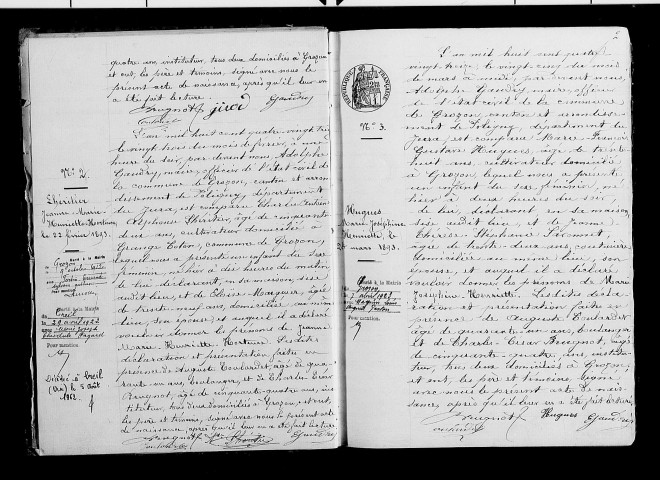 quatre ans, instituteur, tous deux domiciliés à Grozon
et ont, les père et témoins, signé avec nous le
présent acte de naissance, après qu'il leur en
a été fait lecture.
Brugnot Girod Gaudry
N° 2.
Lhéritier
Jeanne Marie
Henriette Hortense
le 22 février 1893.
L'an mil huit cent quatre vingt treize
le vingt trois du mois de février, à une
heure du soir, par devant nous Adolphe
Gaudry, maire, officier de l'état civil de
la commune de Grozon, canton et arron
dissement de Poligny, département
du Jura, est comparu Charles
Alphonse Lhéritier, âgé de cinquante
deux ans, cultivateur domicilié à
Grange, commune de Grozon,
lequel nous a présenté un enfant du sexe
féminin, né hier à dix heures du matin
de lui déclarant, en sa maison, sise
audit lieu, et de
de trente neuf ans, domiciliée au même
lieu, son épouse; et auquel il a déclaré
vouloir donner les prénoms de Jeanne
Marie Henriette Hortense. Lesdites
déclaration et présentation faites en
présence de Auguste, âgé de qua
rante un ans, boulanger, et de Charles César
Brugnot, âgé de cinquante quatre ans, ins
tituteur, tous deux domiciliés à Grozon, et ont,
les père et témoins, signé avec nous le présent acte
de naissance, après qu'il leur en a été fait lecture.
Brugnot Lhéritier Gaudry
Marié à la Mairie
Creil
le 28 avril 1923
Pour mention
Décédé à Creil
le 5 août
1962
RÉPUBLIQUE FRANÇAISE
N° 3.
Hugues
Marie Joséphine
Henriette, le
mars 1893.
Marié à la Mairie
Grozon
avril 1921
Pour mention
L'an mil huit cent quatre
vingt treize, le vingt cinq du mois
de mars à midi, par devant nous,
Adolphe Gaudry, maire, officier
de l'état civil de la commune
de Grozon, canton et arrondisse
ment de Poligny, département du
Jura, est comparu Marie François
Gustave Hugues, âgé de trente
huit ans, cultivateur domicilié
à Grozon, lequel nous a présenté
un enfant du sexe féminin, né
hier à deux heures du soir,
de lui, déclarant, en sa maison,
sise audit lieu, et de Jeanne
Thérèse Stéphanie
âgée de trente deux ans, couturière
domiciliée au même lieu, son
épouse, et auquel il a déclaré
vouloir donner les prénoms de Marie
Joséphine Henriette. Lesdites décla
ration et présentation faites en
présence de Auguste
âgé de quarante un ans, boulanger
et de Charles César Brugnot, âgé
de cinquante quatre ans, institu
teur, tous deux domiciliés à Grozon;
et ont, les père et témoins, signé
avec nous le présent acte de nais
sance, après qu'il leur en a été fait lecture.
Brugnot Hugues Gaudry